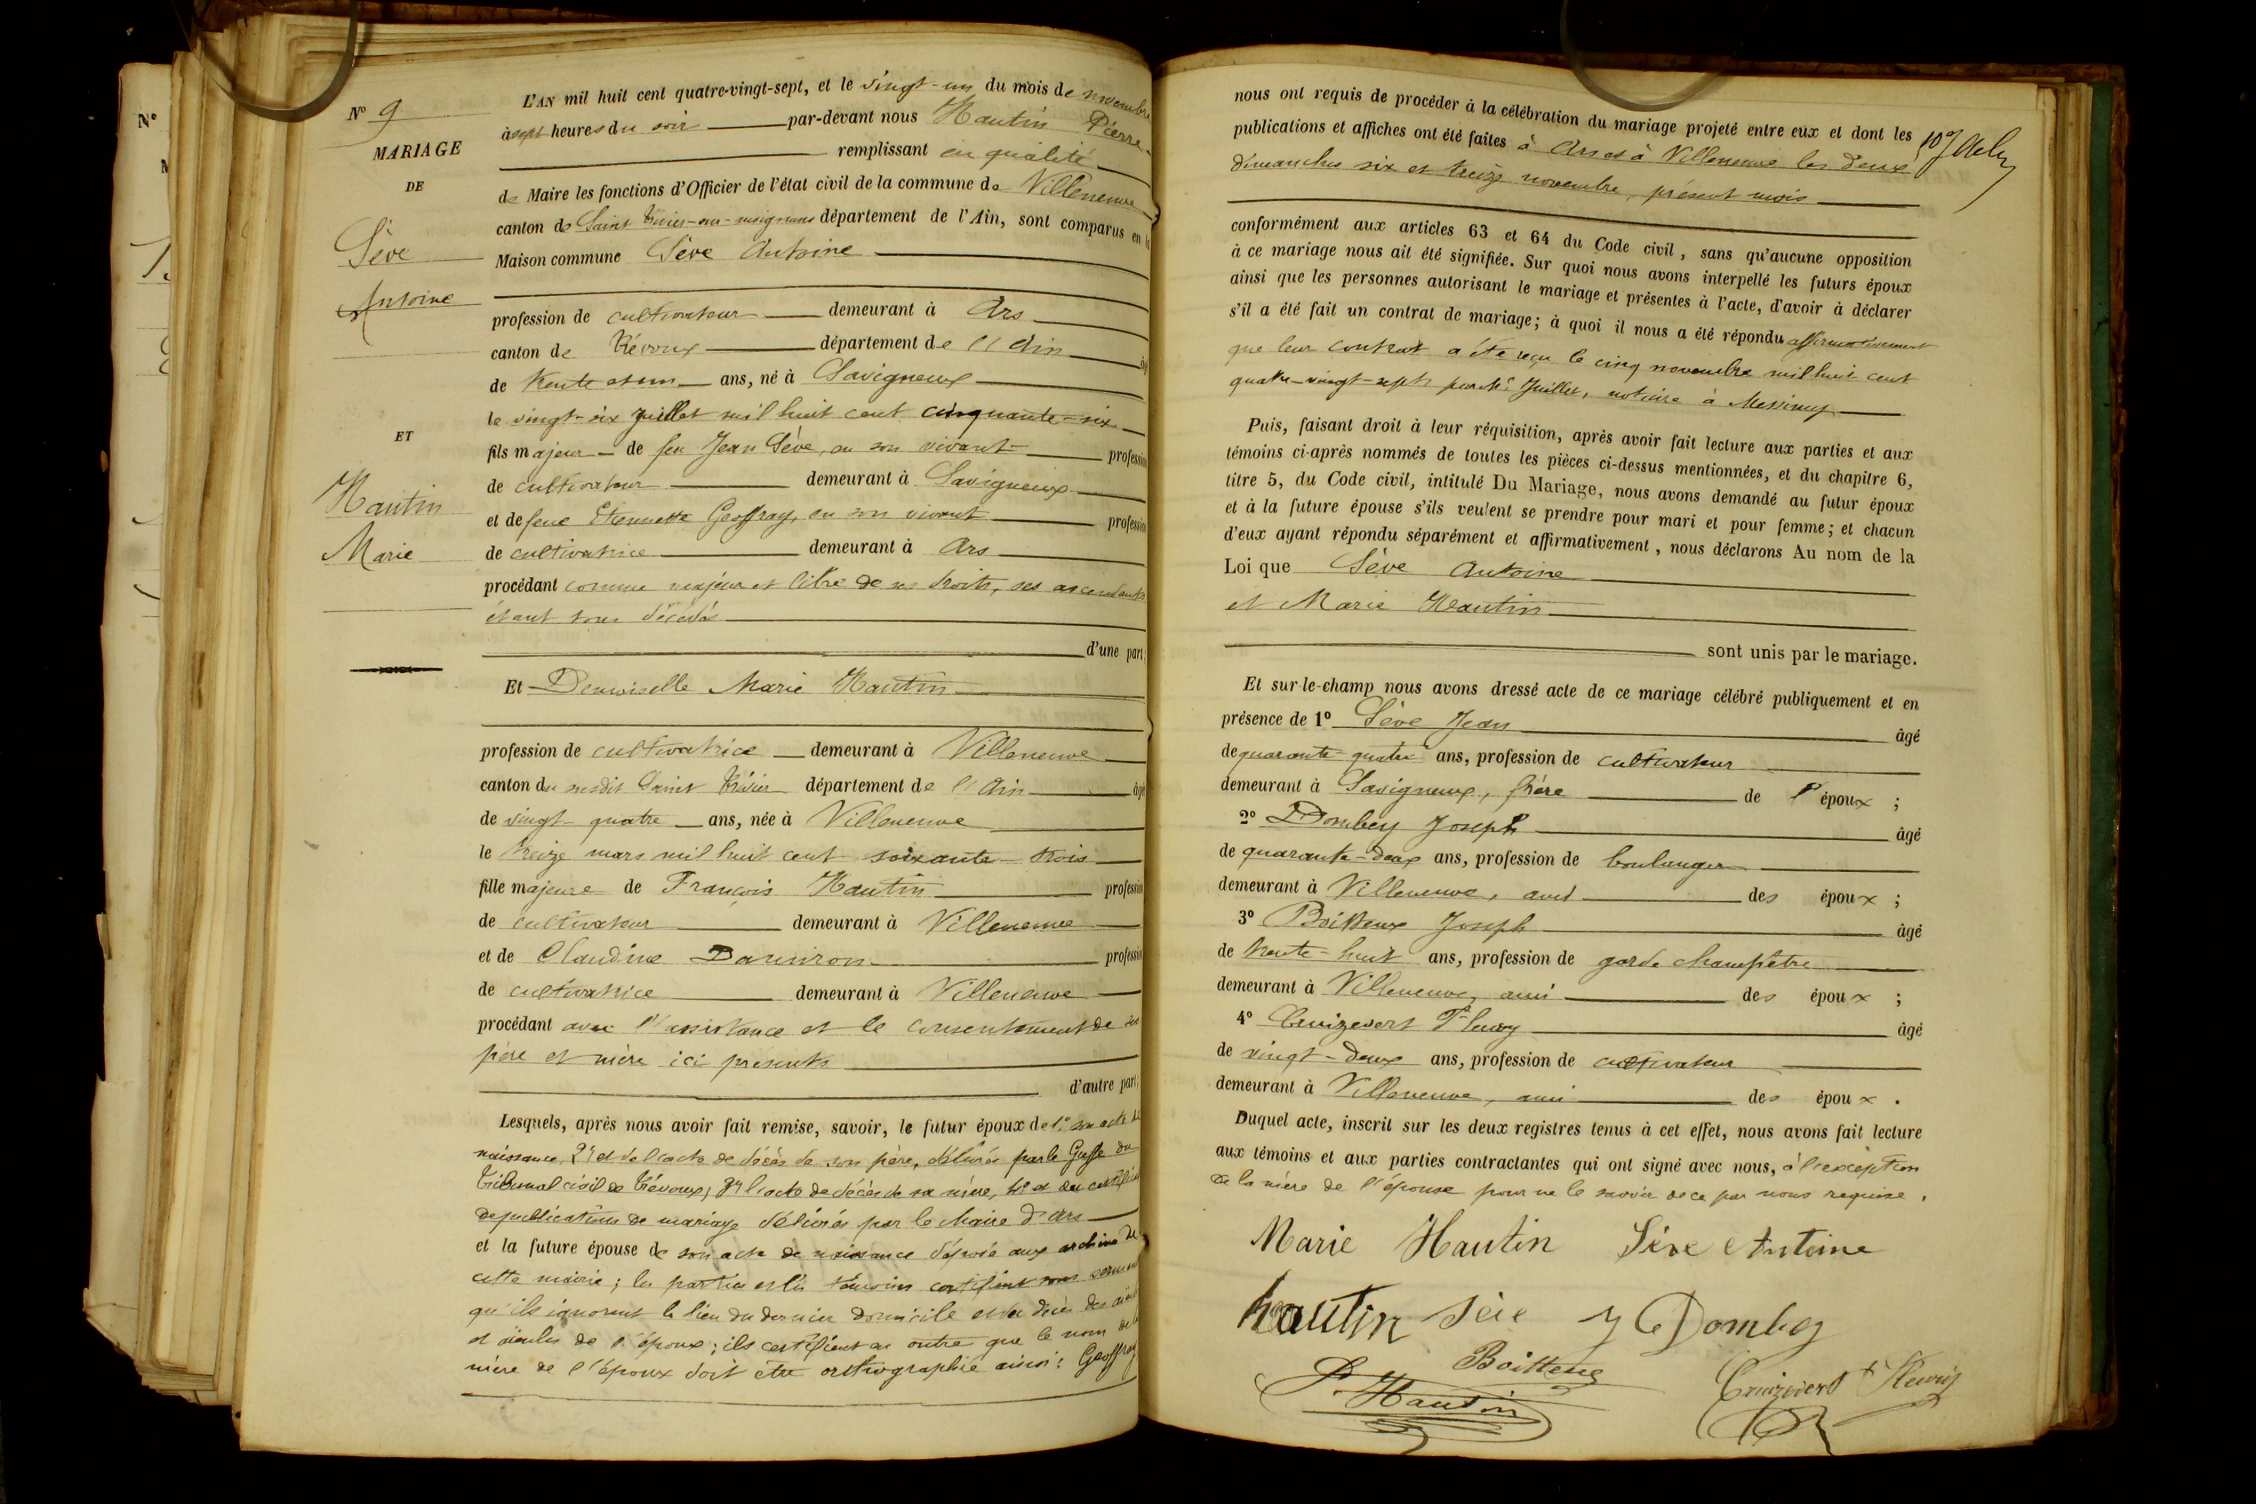 N°
N° 9
MARIAGE
DE
Sève
Antoine
ET
Hautin
Marie
L'AN mil huit cent quatre-vingt-sept, et le vingt-un du mois de novembre
à sept heures du soir par-devant nous Hautin Pierre
remplissant en qualité
de Maire les fonctions d'Officier de l'état civil de la commune de Villeneuve
canton de Saint Trivier-sur-moignans département de l'Ain, sont comparus en la
Maison commune Sève Antoine
profession de cultivateur demeurant à Ars
canton de Trévoux département de l'Ain âgé
de trente et un ans, né à Savigneux
le vingt-six juillet mil huit cent cinquante-six
fils majeur de feu Jean Sève, en son vivant profession
de cultivateur demeurant à Savigneux
et de feue Etiennette Geoffray, en son vivant profession
de cultivatrice demeurant à Ars
procédant comme majeur et libre de ses droits, ses ascendants
étant tous décédés
d'une part;
Et Demoiselle Marie Hautin
profession de cultivatrice demeurant à Villeneuve
canton du susdit Saint Trivier département de l'Ain âgé
de vingt-quatre ans, née à Villeneuve
le treize mars mil huit cent soixante-trois
fille majeure de François Hautin profession
de cultivateur demeurant à Villeneuve
et de Claudine profession
de cultivatrice demeurant à Villeneuve
procédant avec l'assistance et le consentement de ses
père et mère ici présents
d'autre part;
Lesquels, après nous avoir fait remise, savoir, le futur époux de 1° son acte de
naissance, 2° et de l'acte de décès de son père, délivrés par le Greffe du
Tribunal civil de Trévoux; 3° l'acte de décès de sa mère, 4° et du certificat
de publications de mariage délivrés par le Maire d'Ars
et la future épouse de son acte de naissance déposé aux archives de
cette mairie; les parties et les témoins certifient sous serment
qu'ils ignorent le lieu du dernier domicile et du décès des aïeuls
et aïeules de l'époux; ils certifient en outre que le nom de la
mère de l'époux doit être orthographié ainsi: Geoffray
nous ont requis de procéder à la célébration du mariage projeté entre eux et dont les
publications et affiches ont été faites à Ars et à Villeneuve les deux
dimanches six et treize novembre, présent mois
conformément aux articles 63 et 64 du Code civil, sans qu'aucune opposition
à ce mariage nous ait été signifiée. Sur quoi nous avons interpellé les futurs époux
ainsi que les personnes autorisant le mariage et présentes à l'acte, d'avoir à déclarer
s'il a été fait un contrat de mariage; à quoi il nous a été répondu affirmativement
que leur contrat a été reçu le cinq novembre mil huit cent
quatre-vingt-sept par Me Juillet, notaire à Messimy
Puis, faisant droit à leur réquisition, après avoir fait lecture aux parties et aux
témoins ci-après nommés de toutes les pièces ci-dessus mentionnées, et du chapitre 6,
titre 5, du Code civil, intitulé Du Mariage, nous avons demandé au futur époux
et à la future épouse s'ils veulent se prendre pour mari et pour femme; et chacun
d'eux ayant répondu séparément et affirmativement, nous déclarons Au nom de la
Loi que Sève Antoine
et Marie Hautin
sont unis par le mariage.
Et sur-le-champ nous avons dressé acte de ce mariage célébré publiquement et en
présence de 1° Sève Jean âgé
de quarante-quatre ans, profession de cultivateur
demeurant à Savigneux, frère de l'époux ;
2° Dombey Joseph âgé
de quarante-deux ans, profession de boulanger
demeurant à Villeneuve, ami des époux ;
3° Boitteux Joseph âgé
de trente-huit ans, profession de garde champêtre
demeurant à Villeneuve, ami des époux ;
4° Cruizevert Fleury âgé
de vingt-deux ans, profession de cultivateur
demeurant à Villeneuve, ami des époux .
Duquel acte, inscrit sur les deux registres tenus à cet effet, nous avons fait lecture
aux témoins et aux parties contractantes qui ont signé avec nous, à l'exception
de la mère de l'épouse pour ne le savoir de ce par nous requise.
Marie Hautin Sève Antoine
hautin Sève J C Dombey
Boitteux
P. Hautin
Cruizevert Fleury